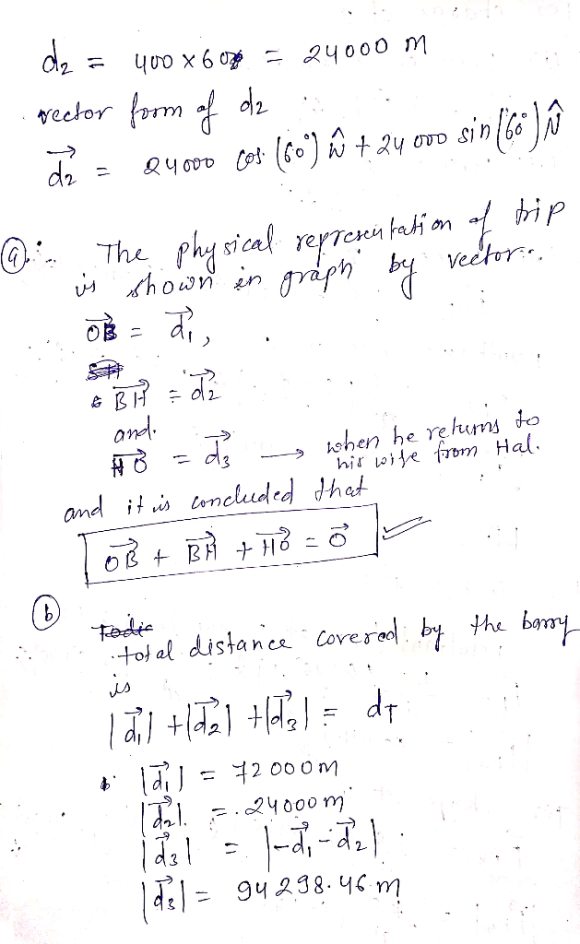 d₂ = 400 × 60 = 24000 m
vector form of d₂
d₂⃗ = 24000 cos (60°) Ŵ + 24000 sin (60°) N̂
(a) ∴ The physical representation of trip
is shown in graph by vector.
OB⃗ = d₁⃗,
BH⃗ = d₂⃗
and.
HO⃗ = d₃⃗ → when he returns to
his wife from Hal.
and it is concluded that
OB⃗ + BH⃗ + HO⃗ = O⃗ ✓
(b)
total distance covered by the barry
is
|d₁⃗| + |d₂⃗| + |d₃⃗| = dT
|d₁⃗| = 72000m
|d₂⃗| = 24000m
|d₃⃗| = |-d₁⃗ - d₂⃗|
|d₃⃗| = 94298.46 m